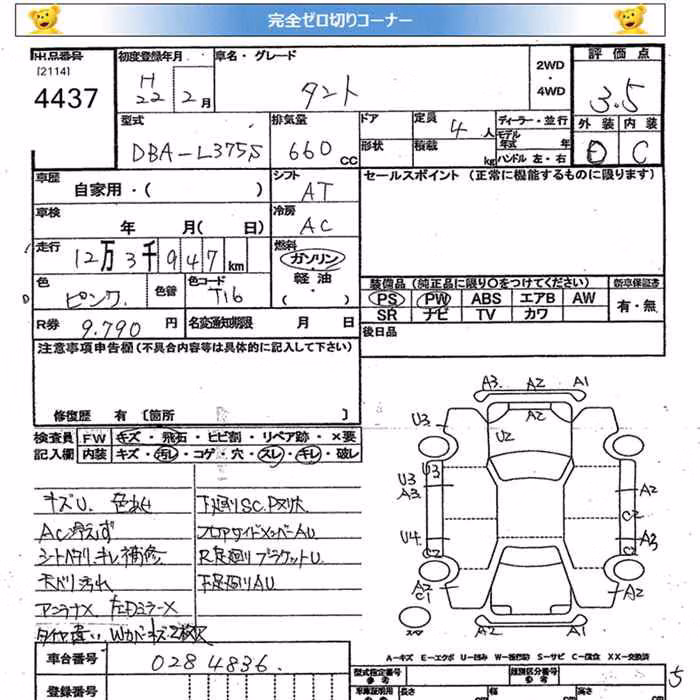 完全ゼロ切りコーナー
出品番号 初度登録年月 車名・グレード 2WD・4WD 評価点
[2114]
4437 H22年 2月 タント 3.5
型式 排気量 ドア 定員 ディーラー・並行 外装 内装
DBA-L375S 660CC 4人 モデル年式 年 D C
形状 積載 kg ハンドル 左・右
車歴 自家用・( ) シフト AT セールスポイント (正常に機能するものに限ります)
車検 年 月(日) 冷房 AC
走行 12万3千947km 燃料 ガソリン・軽油・( )
色 ピンク 色替 色コード T16
装備品 (純正品に限り○をつけてください) 新車保証書
PS PW ABS エアB AW 有・無
SR ナビ TV カワ
R券 9.790円 名変通知期限 月 日
後日品
注意事項申告欄 (不具合内容等は具体的に記入して下さい)
修復歴 有 〔箇所 〕
検査員 FW キズ・飛石・ヒビ割・リペア跡・×要
記入欄 内装 キズ・汚レ・コゲ・穴・スレ・キレ・破レ
キズU. 色あせ
AC冷えず
シートヘタリ.キレ補修
天ベリ汚れ
アンテナX 左DミラーX
下廻りSC.Pヌリ大
フロアサイドメンバーAU
R足廻りブラケットU.
下足廻りAU
A3 A2 A1
A2
U3 U2
U3
U3
A3 A2
C2
U4 A3
C2 C2
A2 A2
C1
A2 A1
スペア
A-キズ E-エクボ U-凹み W-補修跡 S-サビ C-腐食 XX-交換済
車台番号 0284836
登録番号
型式指定番号 参考 類別区分番号 参考
車庫証明用 長さ cm 幅 cm 高さ cm
5